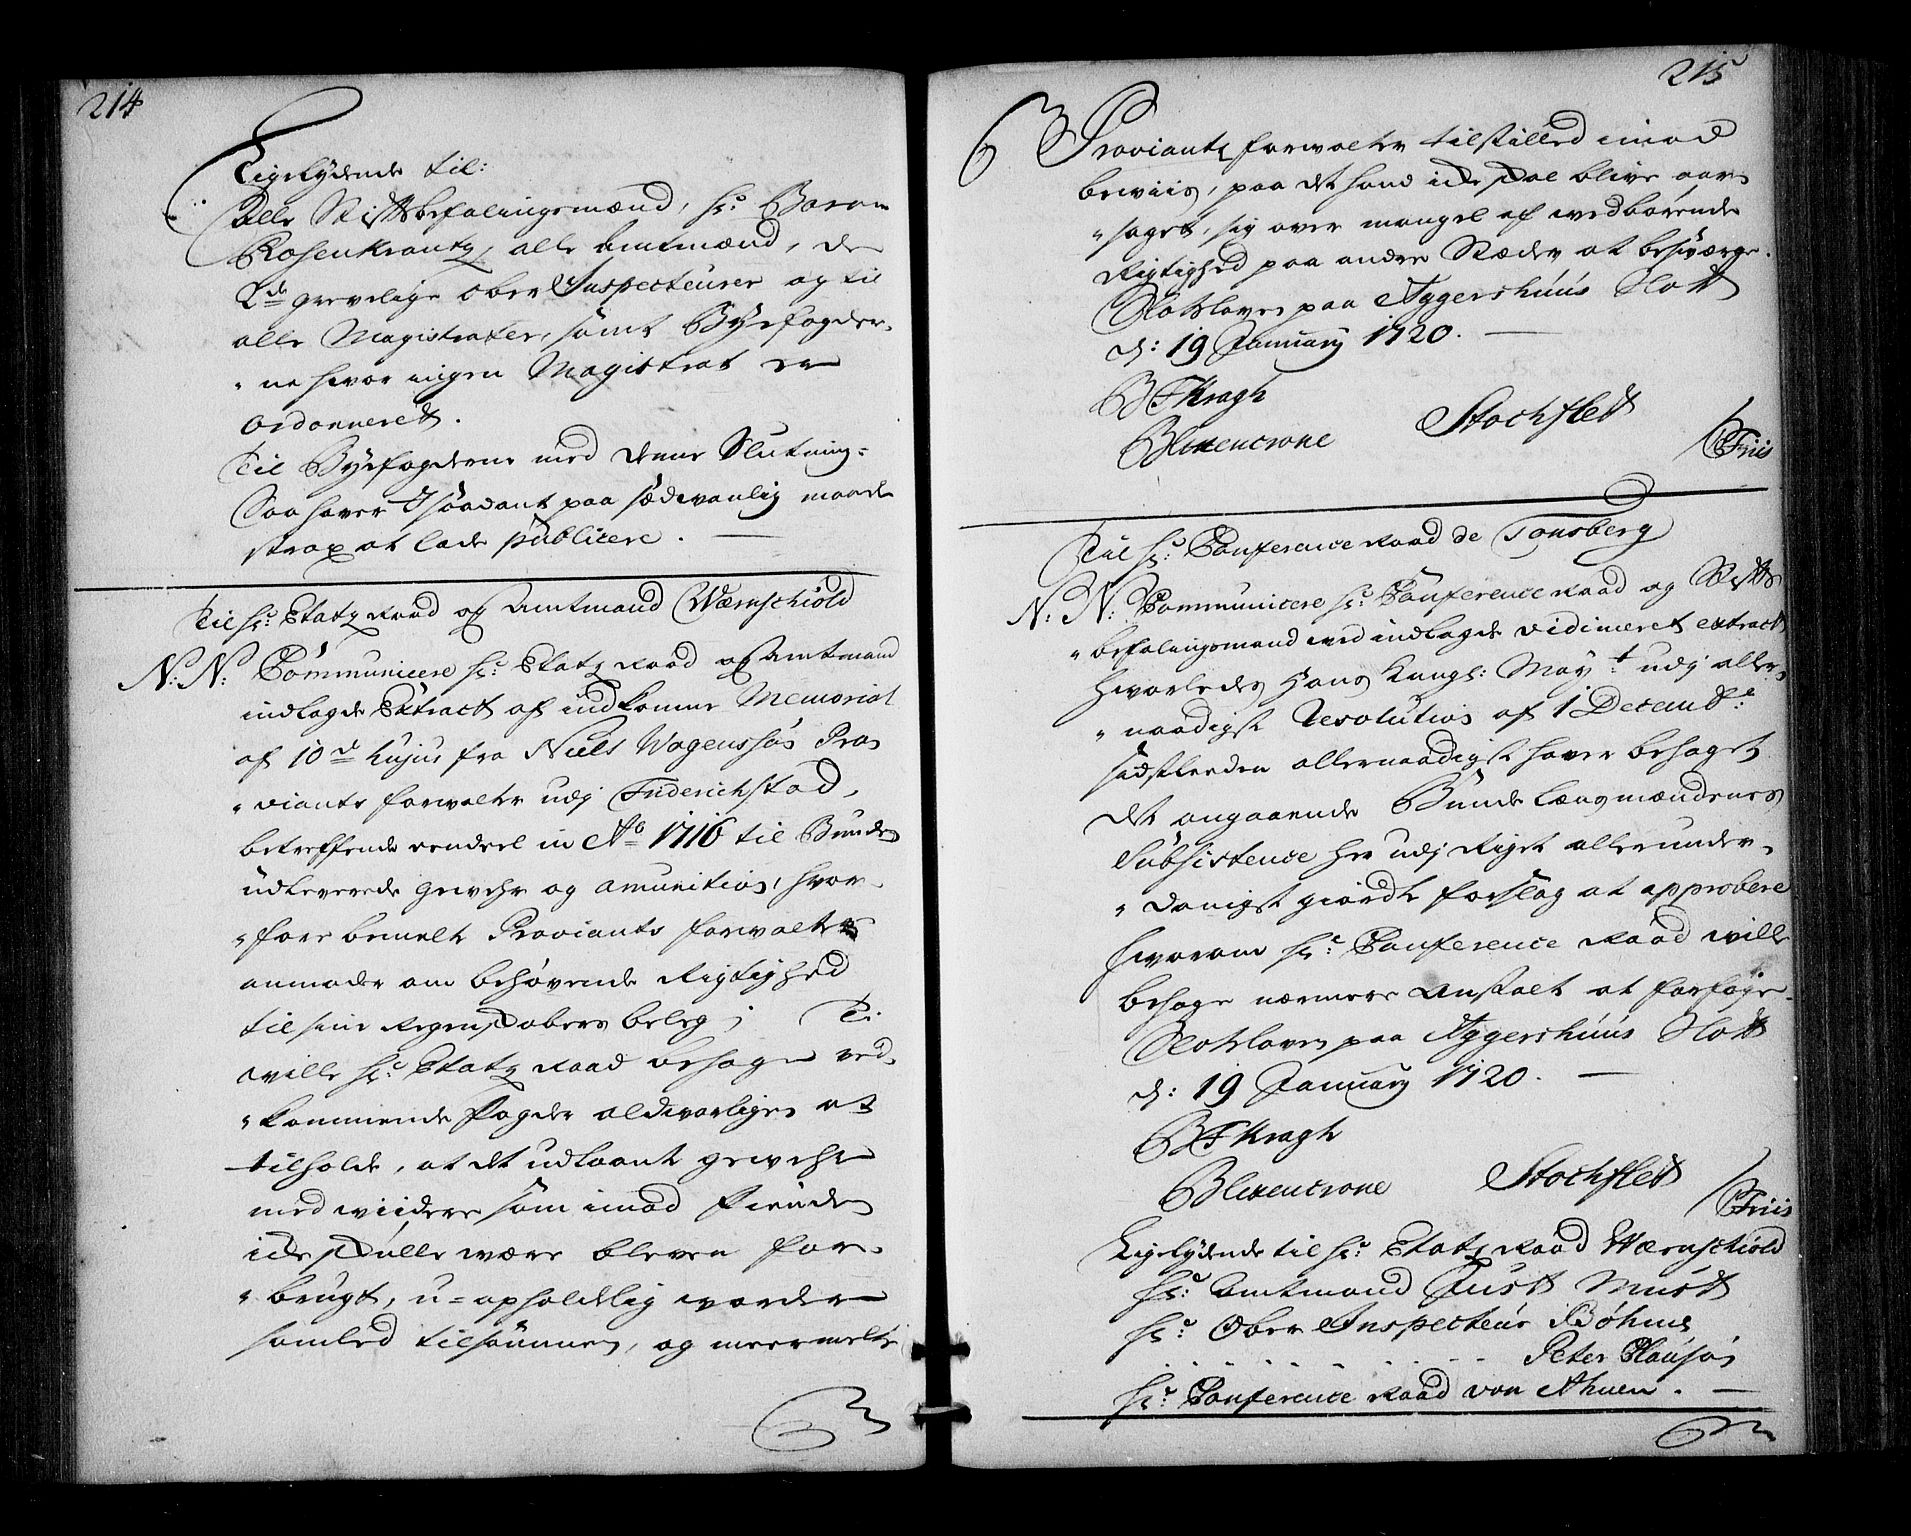 214
Ligelydende til:
Alle Stiftsbefalingsmænd, hr: Baron
Rosenkrantz, alle Amtmænd, de
2de grevelige Ober Inspecteurer og til
alle Magistrater, samt Byefogder-
"ne hvor ingen Magistrat er
ordonneret.
Til Byefogderne med denne Slutning=
Saa haver I saadant paa sædvanlig maade
strax at lade publicere.
Til hr: Etatz Raad og Amtmand Wærnschiold
N: N: Communicere hr: Etatz Raad og Amtmand
indlagde Extract af indkomne Memorial
af 10de hujus fra Niels Wogenssøn Pro-
"viants forvalter udj Friderichstad,
betreffende eendeel in Ao 1716 til Bunder
udleverede gewehr og amunition, hvor-
"fore bemelte Proviants forvalter
anmoder om behøvende Rigtighed
til sine Regenskabers beleg; Ti
wille hr: Etatz Raad behage ved-
"kommende Fogder aldvorligen at
tilholde, at det udlaant gewehr
med widere som imod Fienden
icke skulle være bleven for-
"brugt, u=opholdelig worder
samled tilsammen, og meermelte
215
Proviantz forvalter tilstilled imod
beviis, paa det hand icke skal blive aar-
"saget, sig over mangel af vedbørende
Rigtighed paa andre Stæder at besværge.
Slotsloven paa Aggershuus Slott
d: 19 January 1720.
B F Kragh
Blixencrone Stochflett
C Friis
Til hr: Conference Raad de Tonsberg
N: N: Communicere hr: Conference Raad og Stifts
"befalingsmand ved indlagde vidimeret extract
hvorledes Hans Kongl: Mayt: udj aller-
"naadigst Resolution af 1 Decembr:
sidstleeden allernaadigst haver behaget
det angaaende Bunde Lænsmændenes
Subsistence her udj Riget allerunder-
"danigst giorde forslag at approbere
hvorom hr: Conference Raad wille
behage nærmere Anstalt at forføye.
Slotsloven paa Aggershuus Slott
d: 19 January 1720.
B F Kragh
Blixencrone Stochflett
C Friis
Ligelydende til hr: Etatz Raad Wærnschiold
hr: Amtmand Just Must
hr: Ober Inspecteur Bøhme
Peter Clausøn
hr: Conference Raad von Ahnen.